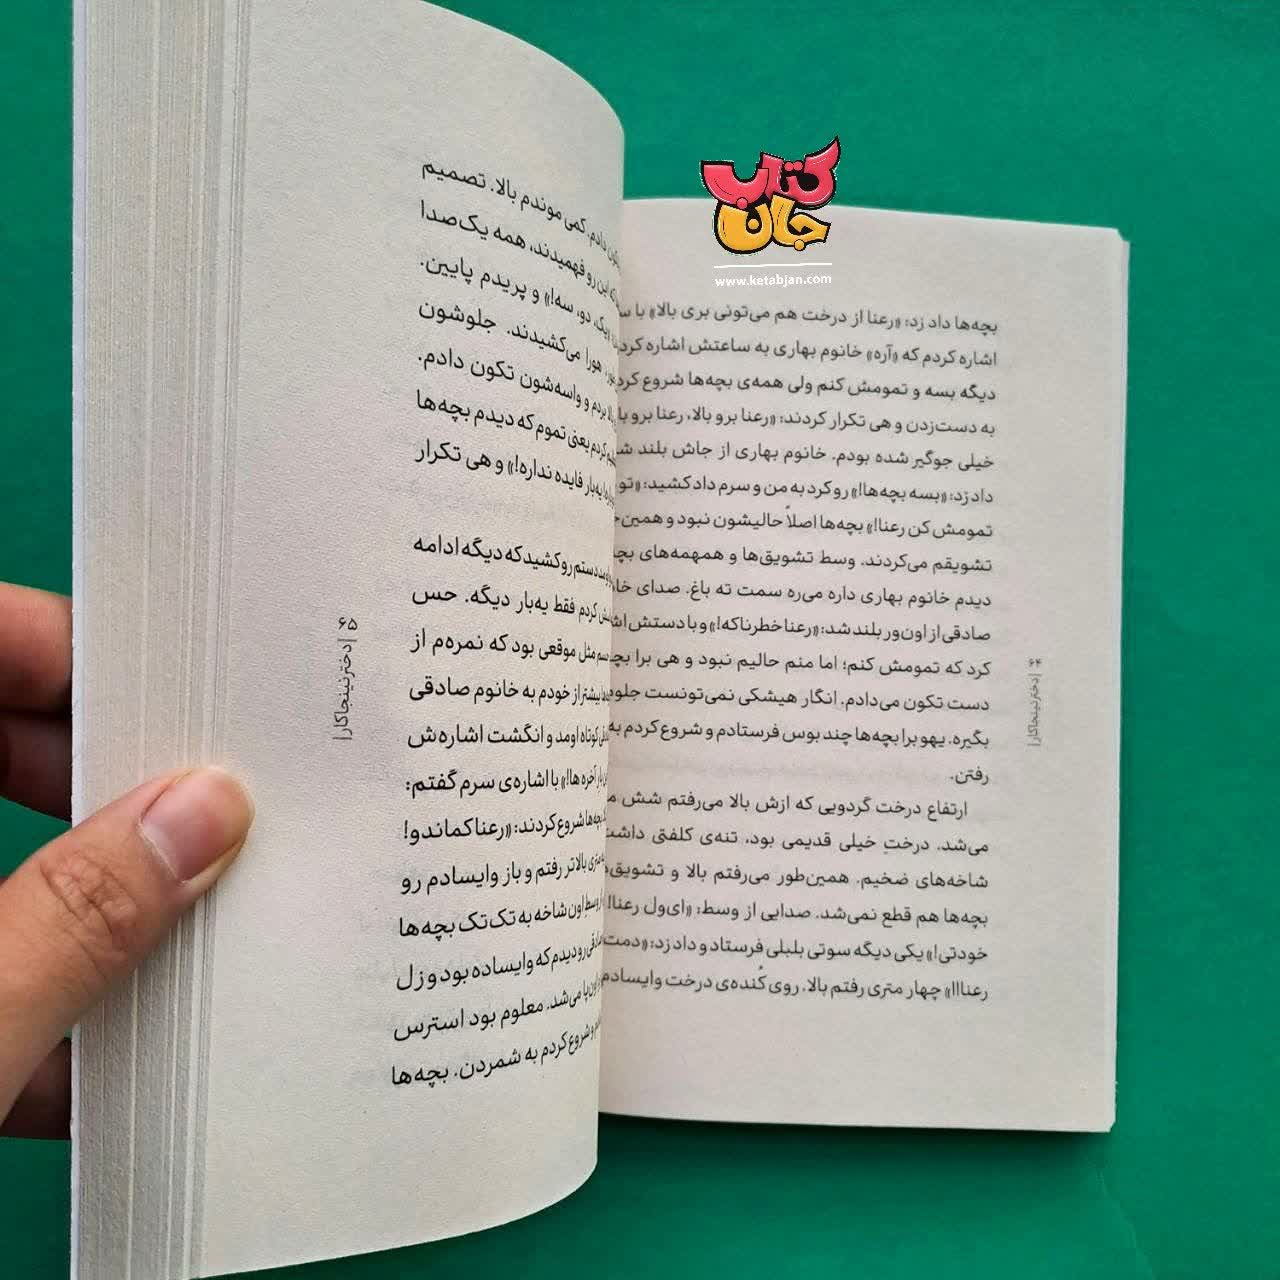 کتاب
جان
www.ketabjan.com
بچه‌ها داد زد: «رعنا از درخت هم می‌تونی بری بالا» با
اشاره کردم که «آره» خانوم بهاری به ساعتش اشاره
دیگه بسه و تمومش کنم ولی همه‌ی بچه‌ها شروع
به دست‌زدن و هی تکرار کردند: «رعنا برو بالا، رعنا برو
خیلی جوگیر شده بودم. خانوم بهاری از جاش بلند
داد زد: «بسه بچه‌ها!» رو کرد به من و سرم داد کشید: «تو
تمومش کن رعنا!» بچه‌ها اصلاً حالیشون نبود و
تشویقم می‌کردند. وسط تشویق‌ها و همهمه‌های
دیدم خانوم بهاری داره می‌ره سمت ته باغ. صدای
صادقی از اون‌ور بلند شد: «رعنا خطرناکه!» و با دستش
کرد که تمومش کنم؛ اما منم حالیم نبود و هی برا
دست تکون می‌دادم. انگار هیشکی نمی‌تونست
بگیره. یهو برا بچه‌ها چند بوس فرستادم و شروع کردم به
رفتن.
ارتفاع درخت گردویی که ازش بالا می‌رفتم شش
می‌شد. درختِ خیلی قدیمی بود، تنه‌ی کلفتی
شاخه‌های ضخیم. همین‌طور می‌رفتم بالا و
بچه‌ها هم قطع نمی‌شد. صدایی از وسط: «ای‌ول رعنا!
خودتی!» یکی دیگه سوتی بلبلی فرستاد و داد زد: «دمت
رعنااا» چهار متری رفتم بالا. روی کُنده‌ی درخت وایسادم
۶۴ |دختر نینجاکار|
دادم. کمی موندم بالا. تصمیم
این رو فهمیدند، همه یک‌صدا
«یک، دو، سه!» و پریدم پایین.
هورا می‌کشیدند. جلوشون
بردم و واسه‌شون تکون دادم.
کردم یعنی تموم که دیدم بچه‌ها
یه‌بار فایده نداره!» و هی تکرار
دستم رو کشید که دیگه ادامه
کردم فقط یه‌بار دیگه. حس
مثل موقعی بود که نمره‌م از
بیشتر از خودم به خانوم صادقی
کوتاه اومد و انگشت اشاره‌ش
آخره ها!» با اشاره‌ی سرم گفتم:
بچه‌ها شروع کردند: «رعنا کماندو!
متری بالاتر رفتم و باز وایسادم رو
وسط اون شاخه به تک‌تک بچه‌ها
رو دیدم که وایساده بود و زل
می‌شد. معلوم بود استرس
و شروع کردم به شمردن. بچه‌ها
۶۵ |دختر نینجاکار|